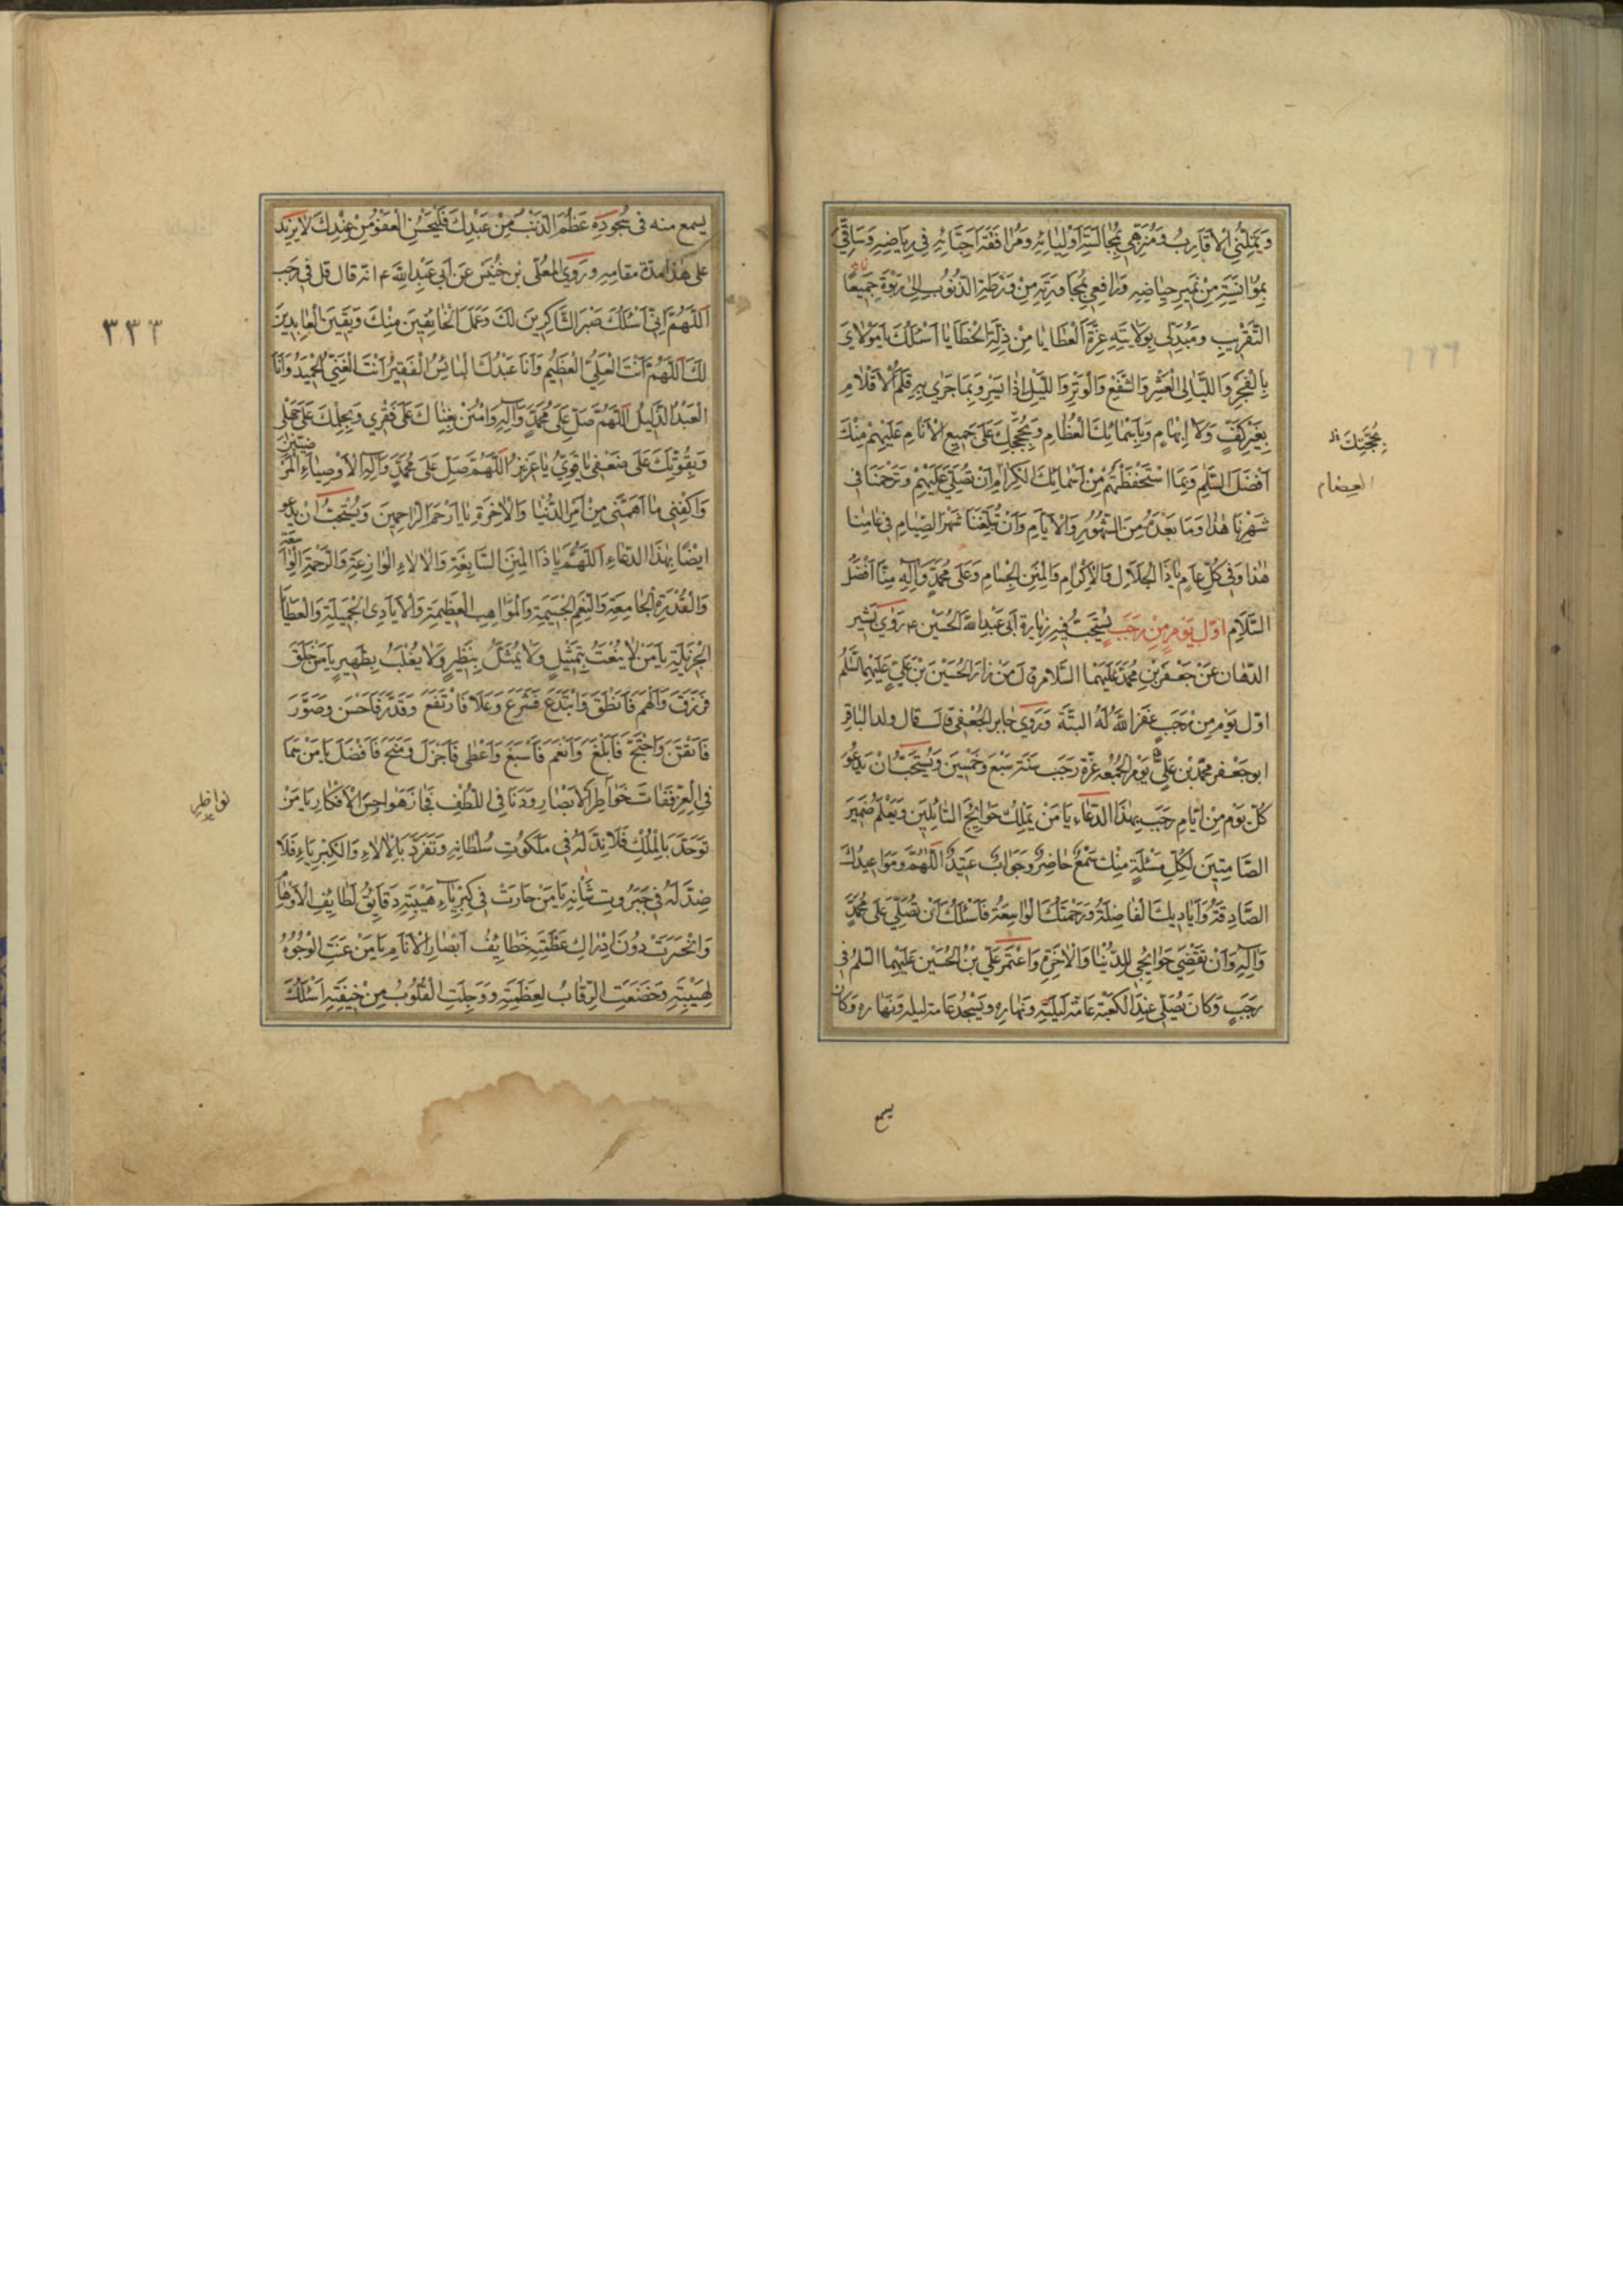 وَيَمَلُّنِي الْأَقَارِبُ وَمُنَزِّهِي بِمُجَالَسَةِ أَوْلِيَائِهِ وَمُرَافَقَةِ أَحِبَّائِهِ فِي رِيَاضِهِ وَسَاقِيَّ
بِمُؤَانَسَتِهِ مِنْ نَمِيرِ حِيَاضِهِ وَرَافِعِي بِمُجَاوَرَتِهِ مِنْ وَرْطَةِ الذُّنُوبِ إِلَى رَبْوَةِ
التَّقْرِيبِ وَمُبَدِّلِي بِوَلَايَتِهِ عِزَّةَ الْعَطَايَا مِنْ ذِلَّةِ الْخَطَايَا أَسْئَلُكَ يَا مَوْلَايَ
بِالْفَجْرِ وَاللَّيَالِي الْعَشْرِ وَالشَّفْعِ وَالْوَتْرِ وَاللَّيْلِ إِذَا يَسْرِ وَبِمَا جَرَى بِهِ قَلَمُ الْأَقْلَامِ
بِغَيْرِ كَفٍّ وَلَا إِبْهَامٍ وَبِأَسْمَائِكَ الْعُظَامِ وَبِحُجَجِكَ عَلَى جَمِيعِ الْأَنَامِ عَلَيْهِمْ مِنْكَ
بِحُجَّتِكَ
أَفْضَلُ السَّلَمِ وَبِمَا اسْتَحْفَظْتَهُمْ مِنْ أَسْمَائِكَ الْكِرَامِ أَنْ تُصَلِّيَ عَلَيْهِمْ وَتَرْحَمَنَا فِي
العضام
شَهْرِنَا هٰذَا وَمَا بَعْدَهُ مِنَ الشُّهُورِ وَالْأَيَّامِ وَأَنْ تُبَلِّغَنَا شَهْرَ الصِّيَامِ فِي عَامِنَا
هٰذَا وَفِي كُلِّ عَامٍ يَا ذَا الْجَلَالِ وَالْإِكْرَامِ وَالْمِنَنِ الْجِسَامِ وَعَلَى مُحَمَّدٍ وَآلِهِ مِنَّا أَفْضَلُ
السَّلَامِ اوّل يَوْمٍ مِنْ رَجَبٍ يُسْتَحَبُّ فِيهِ زِيَارَةُ أَبِي عَبْدِ اللَّهِ الْحُسَيْنِ ع رَوَى بَشِيرُ
الدَّهَّانِ عَنْ جَعْفَرِ بْنِ مُحَمَّدٍ عَلَيْهِمَا السَّلَامُ قَالَ مَنْ زَارَ الْحُسَيْنَ بْنَ عَلِيٍّ عَلَيْهِمَا السَّلَمُ
اوّل يَوْمٍ مِنْ رَجَبٍ غَفَرَ اللَّهُ لَهُ الْبَتَّةَ وَرَوَى جَابِرٌ الْجُعْفِي قَالَ قال ولد الباقر
ابو جَعْفَرٍ مُحَمَّدُ بْنُ عَلِيٍّ يَوْمَ الْجُمُعَةِ غُرَّةَ رَجَبٍ سَنَةَ سَبْعٍ وَخَمْسِينَ وَيُسْتَحَبُّ أَنْ يَدْعُوَ
كُلَّ يَوْمٍ مِنْ أَيَّامِ رَجَبٍ بِهٰذَا الدُّعَاءِ يَا مَنْ يَمْلِكُ حَوَائِجَ السَّائِلِينَ وَيَعْلَمُ ضَمِيرَ
الصَّامِتِينَ لِكُلِّ مَسْئَلَةٍ مِنْكَ سَمْعٌ حَاضِرٌ وَجَوَابٌ عَتِيدٌ اللَّهُمَّ وَمَوَاعِيدُكَ
الصَّادِقَةُ وَأَيَادِيكَ الْفَاضِلَةُ وَرَحْمَتُكَ الْوَاسِعَةُ فَأَسْئَلُكَ أَنْ تُصَلِّيَ عَلَى مُحَمَّدٍ
وَآلِهِ وَأَنْ تَقْضِيَ حَوَائِجِي لِلدُّنْيَا وَالْآخِرَةِ وَاعْتَمَرَ عَلِيُّ بْنُ الْحُسَيْنِ عَلَيْهِمَا السَّلَمُ فِي
رَجَبٍ وَكَانَ يُصَلِّي عِنْدَ الْكَعْبَةِ عَامَّةَ لَيْلَتِهِ وَنَهَارِهِ وَيَسْجُدُ عَامَّةَ لَيْلِهِ وَنَهَارِهِ وَكَانَ
يسمع
يسمع منه فِي سُجُودِهِ عَظُمَ الذَّنْبُ مِنْ عَبْدِكَ فَلْيَحْسُنِ الْعَفْوُ مِنْ عِنْدِكَ لَا يَزِيدُ
على هٰذا مدّة مقامه وَرَوَى الْمُعَلَّى بْنُ خُنَيْسٍ عَنْ أَبِي عَبْدِ اللَّهِ ع انّه قال قل فِي رَجَبٍ
اَللَّهُمَّ إِنِّي أَسْئَلُكَ صَبْرَ الشَّاكِرِينَ لَكَ وَعَمَلَ الْخَائِفِينَ مِنْكَ وَيَقِينَ الْعَابِدِينَ
٣٣٣
لَكَ اَللَّهُمَّ أَنْتَ الْعَلِيُّ الْعَظِيمُ وَأَنَا عَبْدُكَ الْبَائِسُ الْفَقِيرُ أَنْتَ الْغَنِيُّ الْحَمِيدُ وَأَنَا
الْعَبْدُ الذَّلِيلُ اَللَّهُمَّ صَلِّ عَلَى مُحَمَّدٍ وَآلِهِ وَامْنُنْ بِغِنَاكَ عَلَى فَقْرِي وَبِحِلْمِكَ عَلَى جَهْلِي
وَبِقُوَّتِكَ عَلَى ضَعْفِي يَا قَوِيُّ يَا عَزِيزُ اَللَّهُمَّ صَلِّ عَلَى مُحَمَّدٍ وَآلِهِ الْأَوْصِيَاءِ الْمَرْضِيِّينَ
وَاكْفِنِي مَا أَهَمَّنِي مِنْ أَمْرِ الدُّنْيَا وَالْآخِرَةِ يَا أَرْحَمَ الرَّاحِمِينَ وَيُسْتَحَبُّ أَنْ يَدْعُو
ايْضًا بِهٰذَا الدُّعَاءِ اَللَّهُمَّ يَا ذَا الْمِنَنِ السَّابِغَةِ وَالْآلَاءِ الْوَازِعَةِ وَالرَّحْمَةِ الْوَاسِعَةِ
وَالْقُدْرَةِ الْجَامِعَةِ وَالنِّعَمِ الْجَسِيمَةِ وَالْمَوَاهِبِ الْعَظِيمَةِ وَالْأَيَادِي الْجَمِيلَةِ وَالْعَطَايَا
الْجَزِيلَةِ يَا مَنْ لَا يُنْعَتُ بِتَمْثِيلٍ وَلَا يُمَثَّلُ بِنَظِيرٍ وَلَا يُغْلَبُ بِظَهِيرٍ يَا مَنْ خَلَقَ
فَرَزَقَ وَأَلْهَمَ فَأَنْطَقَ وَابْتَدَعَ فَشَرَعَ وَعَلَا فَارْتَفَعَ وَقَدَّرَ فَأَحْسَنَ وَصَوَّرَ
فَأَتْقَنَ وَاحْتَجَّ فَأَبْلَغَ وَأَنْعَمَ فَأَسْبَغَ وَأَعْطَى فَأَجْزَلَ وَمَنَحَ فَأَفْضَلَ يَا مَنْ سَمَا
فِي الْعِزِّ فَفَاتَ خَوَاطِرَ الْأَبْصَارِ وَدَنَا فِي اللُّطْفِ فَجَازَ هَوَاجِسَ الْأَفْكَارِ يَا مَنْ
نواظر
تَوَحَّدَ بِالْمُلْكِ فَلَا نِدَّ لَهُ فِي مَلَكُوتِ سُلْطَانِهِ وَتَفَرَّدَ بِالْآلَاءِ وَالْكِبْرِيَاءِ فَلَا
ضِدَّ لَهُ فِي جَبَرُوتِ شَأْنِهِ يَا مَنْ حَارَتْ فِي كِبْرِيَاءِ هَيْبَتِهِ دَقَايِقُ لَطَايِفِ الْأَوْهَامِ
وَانْحَسَرَتْ دُونَ إِدْرَاكِ عَظَمَتِهِ خَطَايِفُ أَبْصَارِ الْأَنَامِ يَا مَنْ عَنَتِ الْوُجُوهُ
لِهَيْبَتِهِ وَخَضَعَتِ الرِّقَابُ لِعَظَمَتِهِ وَوَجِلَتِ الْقُلُوبُ مِنْ خِيفَتِهِ أَسْئَلُكَ